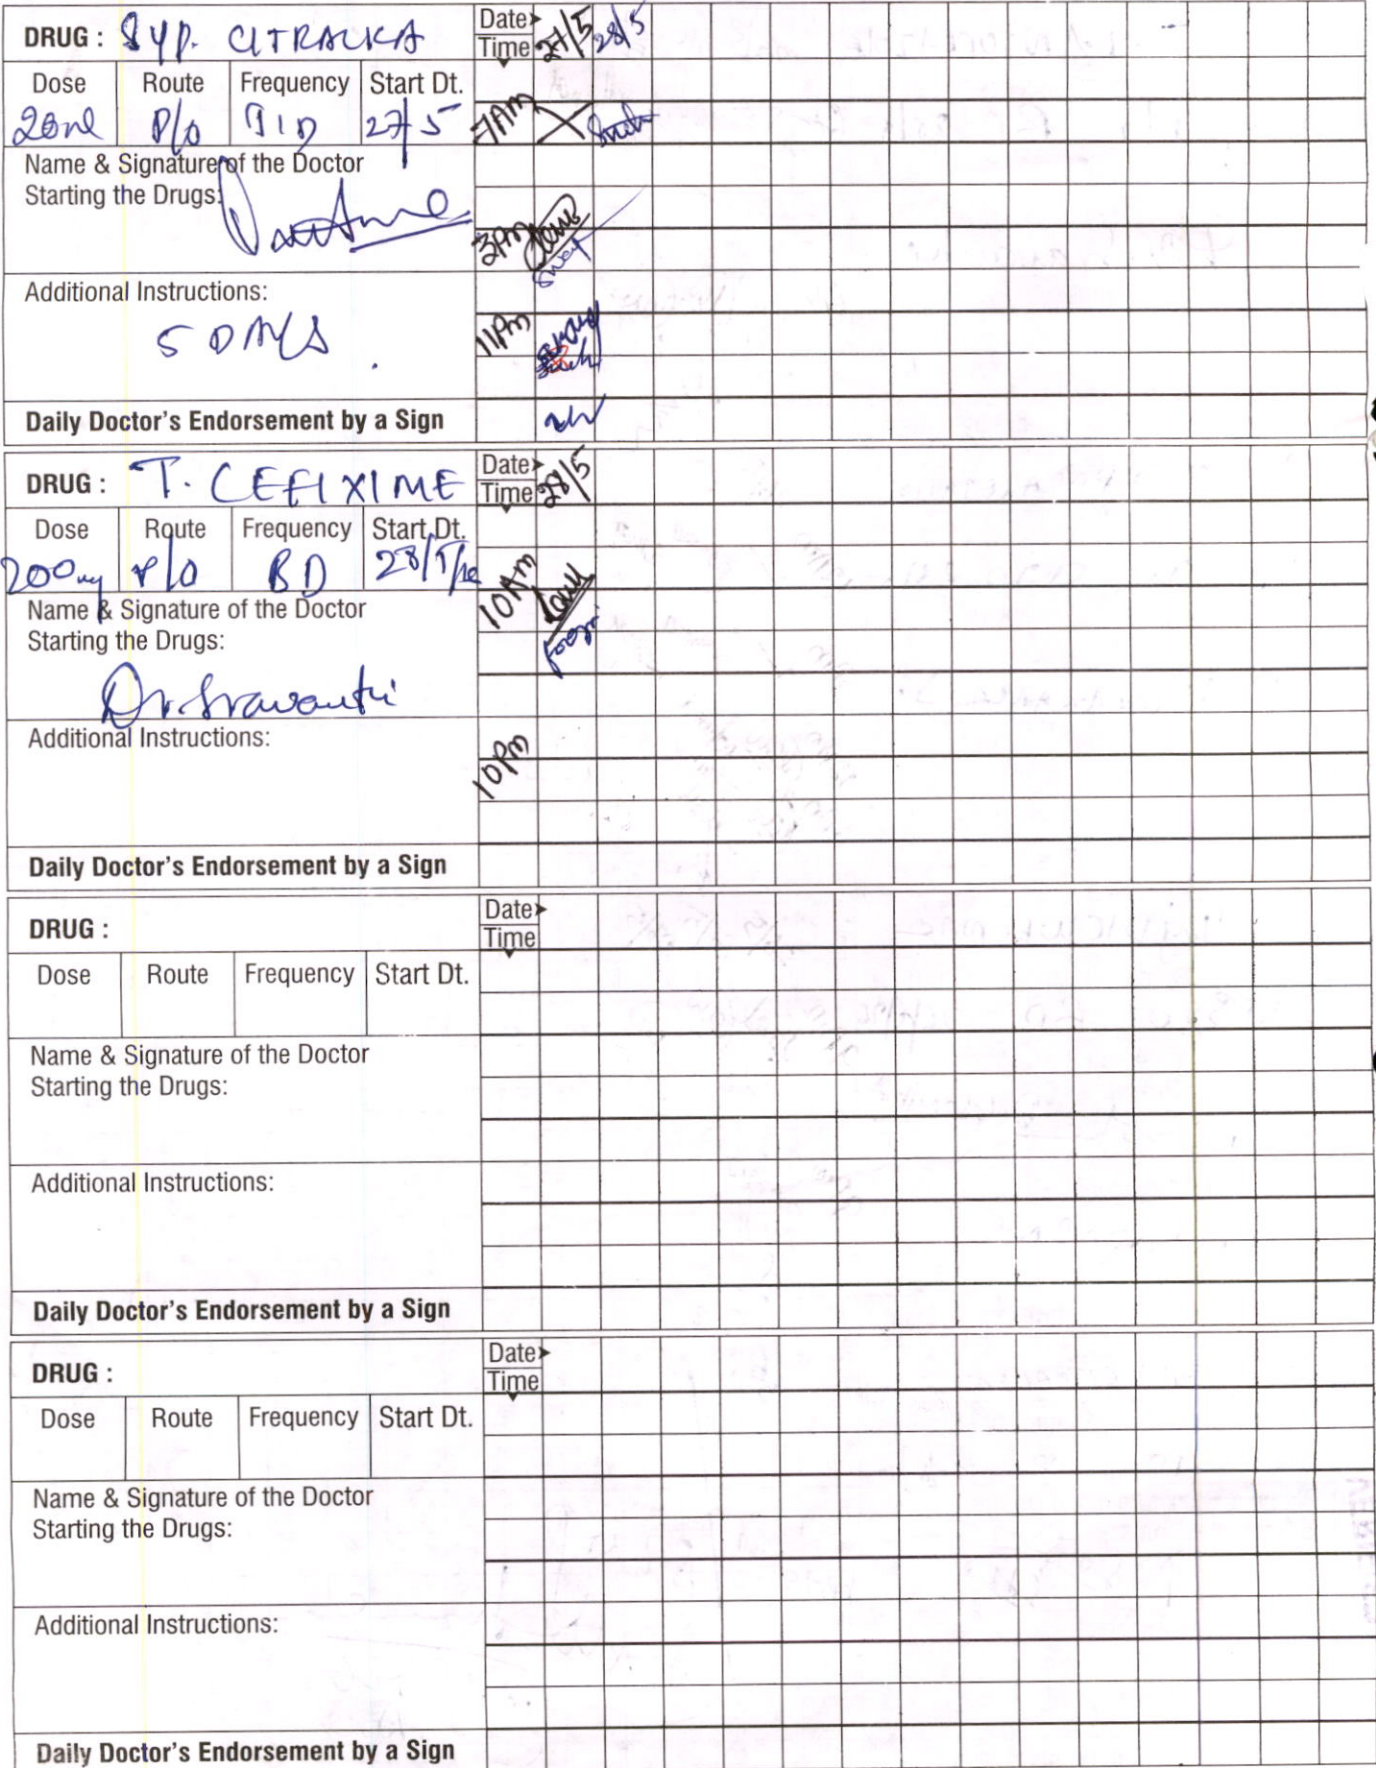 DRUG : SYP. CITRALKA
Date
Time
27/5 28/5
Dose Route Frequency Start Dt.
20ml P/O TID 27/5
7AM X
Name & Signature of the Doctor
Starting the Drugs:
3PM
Additional Instructions:
5 DAYS.
11PM
Daily Doctor's Endorsement by a Sign
DRUG : T. CEFIXIME
Date
Time
28/5
Dose Route Frequency Start Dt.
200mg P/O BD
10AM
Name & Signature of the Doctor
Starting the Drugs:
Dr. Sravanthi
Additional Instructions:
10PM
Daily Doctor's Endorsement by a Sign
DRUG :
Date
Time
Dose Route Frequency Start Dt.
Name & Signature of the Doctor
Starting the Drugs:
Additional Instructions:
Daily Doctor's Endorsement by a Sign
DRUG :
Date
Time
Dose Route Frequency Start Dt.
Name & Signature of the Doctor
Starting the Drugs:
Additional Instructions:
Daily Doctor's Endorsement by a Sign